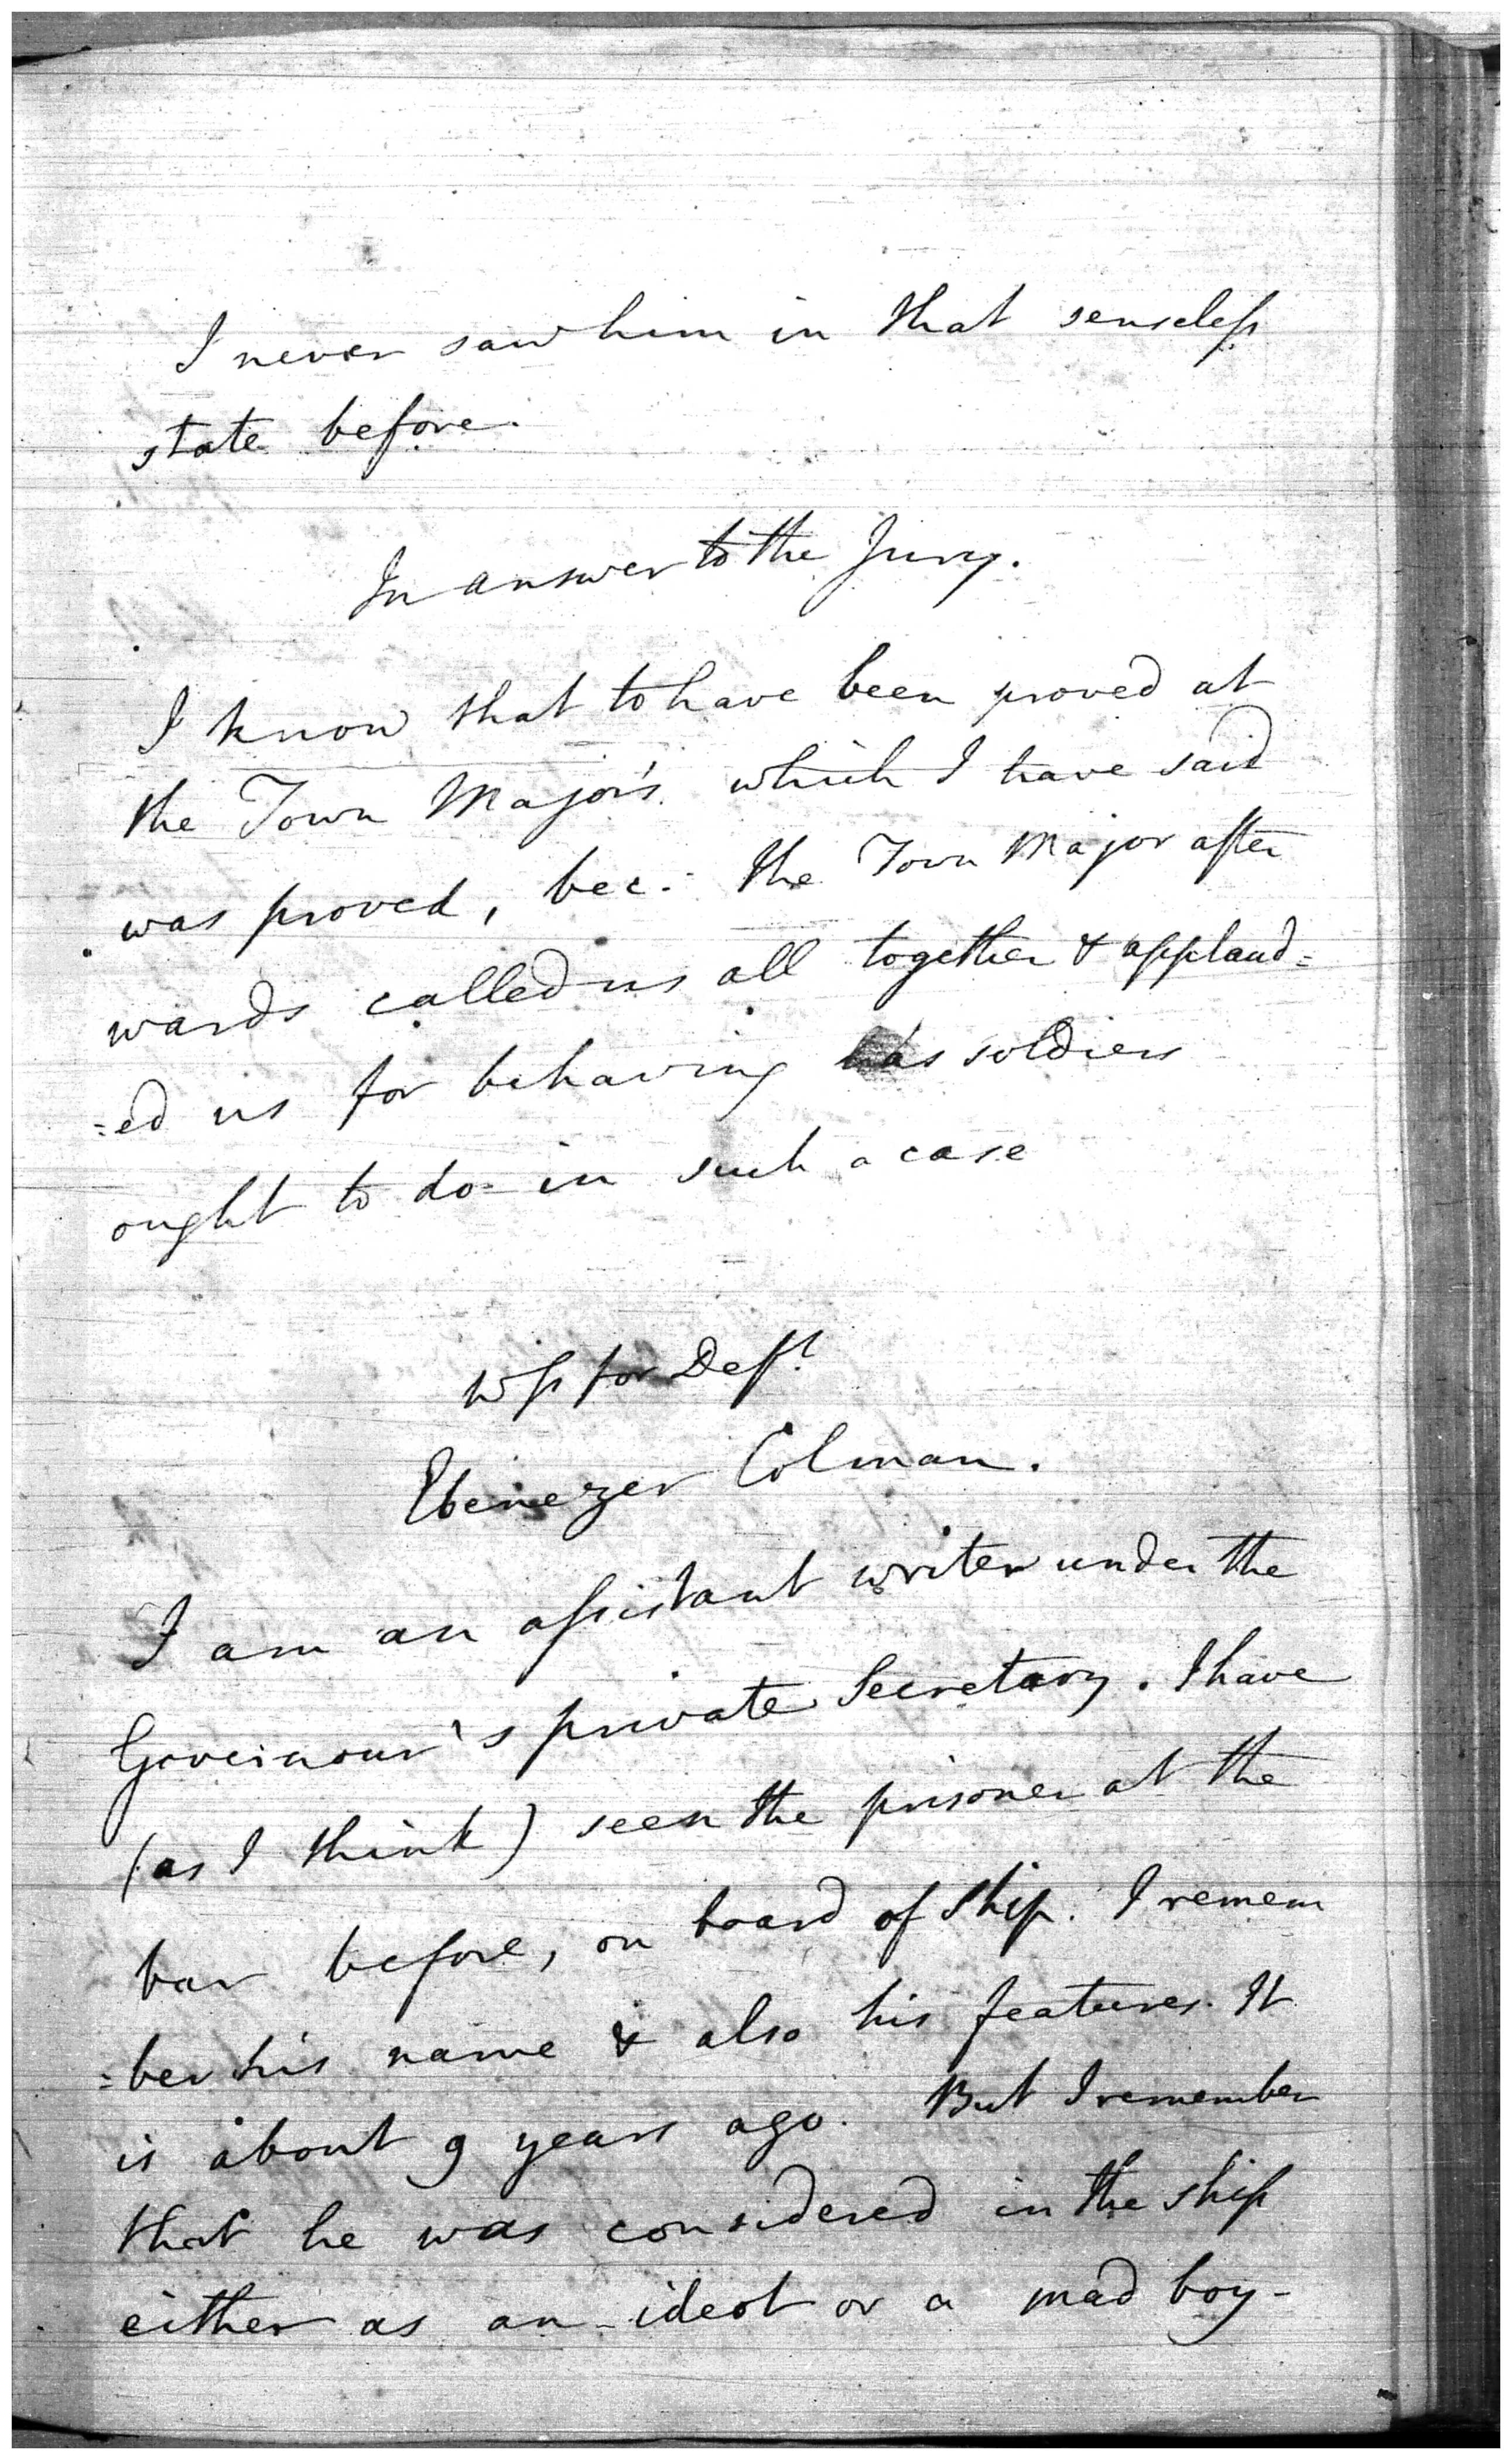 I never saw him in that senseless
state before.
In answer to the Jury.
I know that to have been proved at
the Town Major's which I have said
was proved, bec: the Town Major after
wards called us all together & applaud=
=ed us for behaving as soldiers
ought to do in such a case
Wss for Deft
Ebenezer Colman.
I am an assistant writer under the
Governour's private Secretary. I have
(as I think) seen the prisoner at the
bar before, on board of ship. I remem
=ber his name & also his features. It
is about 9 years ago. But I remember
that he was considered in the ship
either as an ideot or a mad boy-